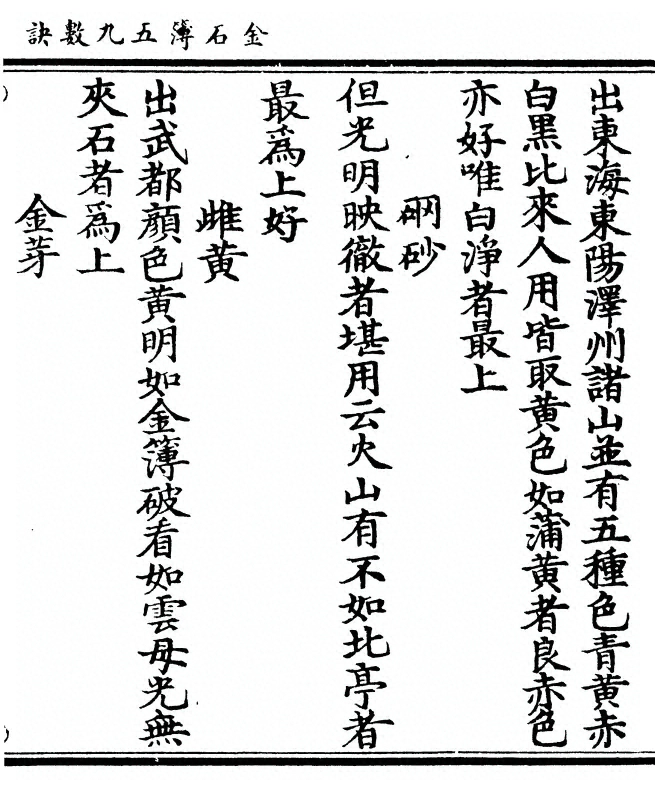 金石簿五九數訣
出東海東陽澤州諸山並有五種色青黃赤
白黑比來人用皆取黃色如蒲黃者良赤色
亦好唯白淨者最上
硇砂
但光明映徹者堪用云火山有不如北亭者
最爲上好
雌黃
出武都顔色黃明如金簿破看如雲母光無
夾石者爲上
金芽